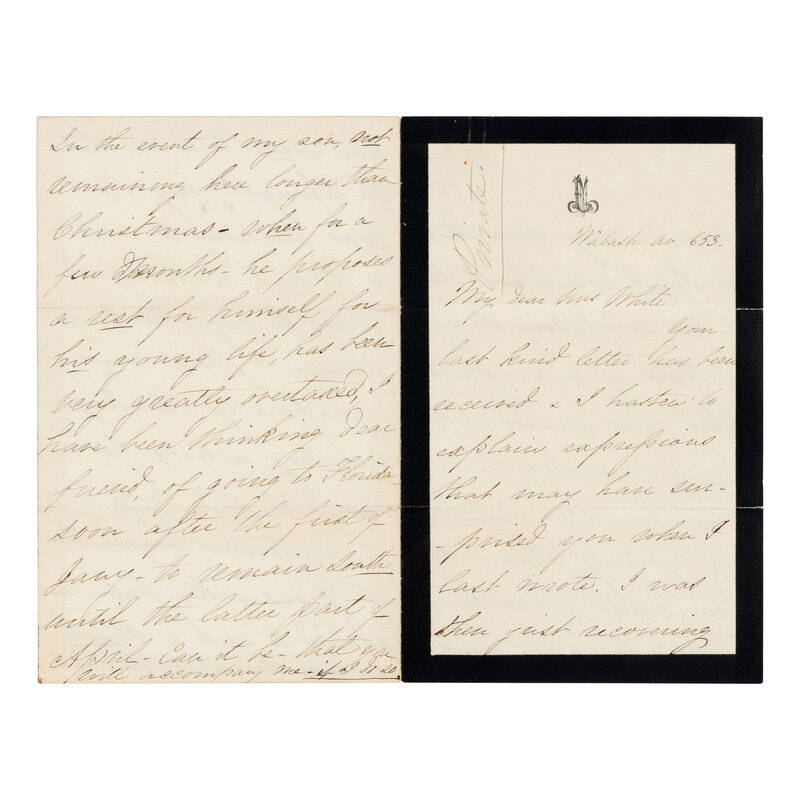 In the event of my son, not
remaining here longer than
Christmas - when for a
few months - he proposes
a rest for himself for
his young life, has been
very greatly overtaxed, I
have been thinking dear
friend, of going to Florida
soon after the first of
Jany - to remain South
until the latter part of
April - Can it be - that you
will accompany me - if I do so
Private.
Wabash av. 653.
My dear Mrs White:
Your
last kind letter has been
received & I hasten to
explain expressions
that may have sur-
-prised you when I
last wrote. I was
then just recovering